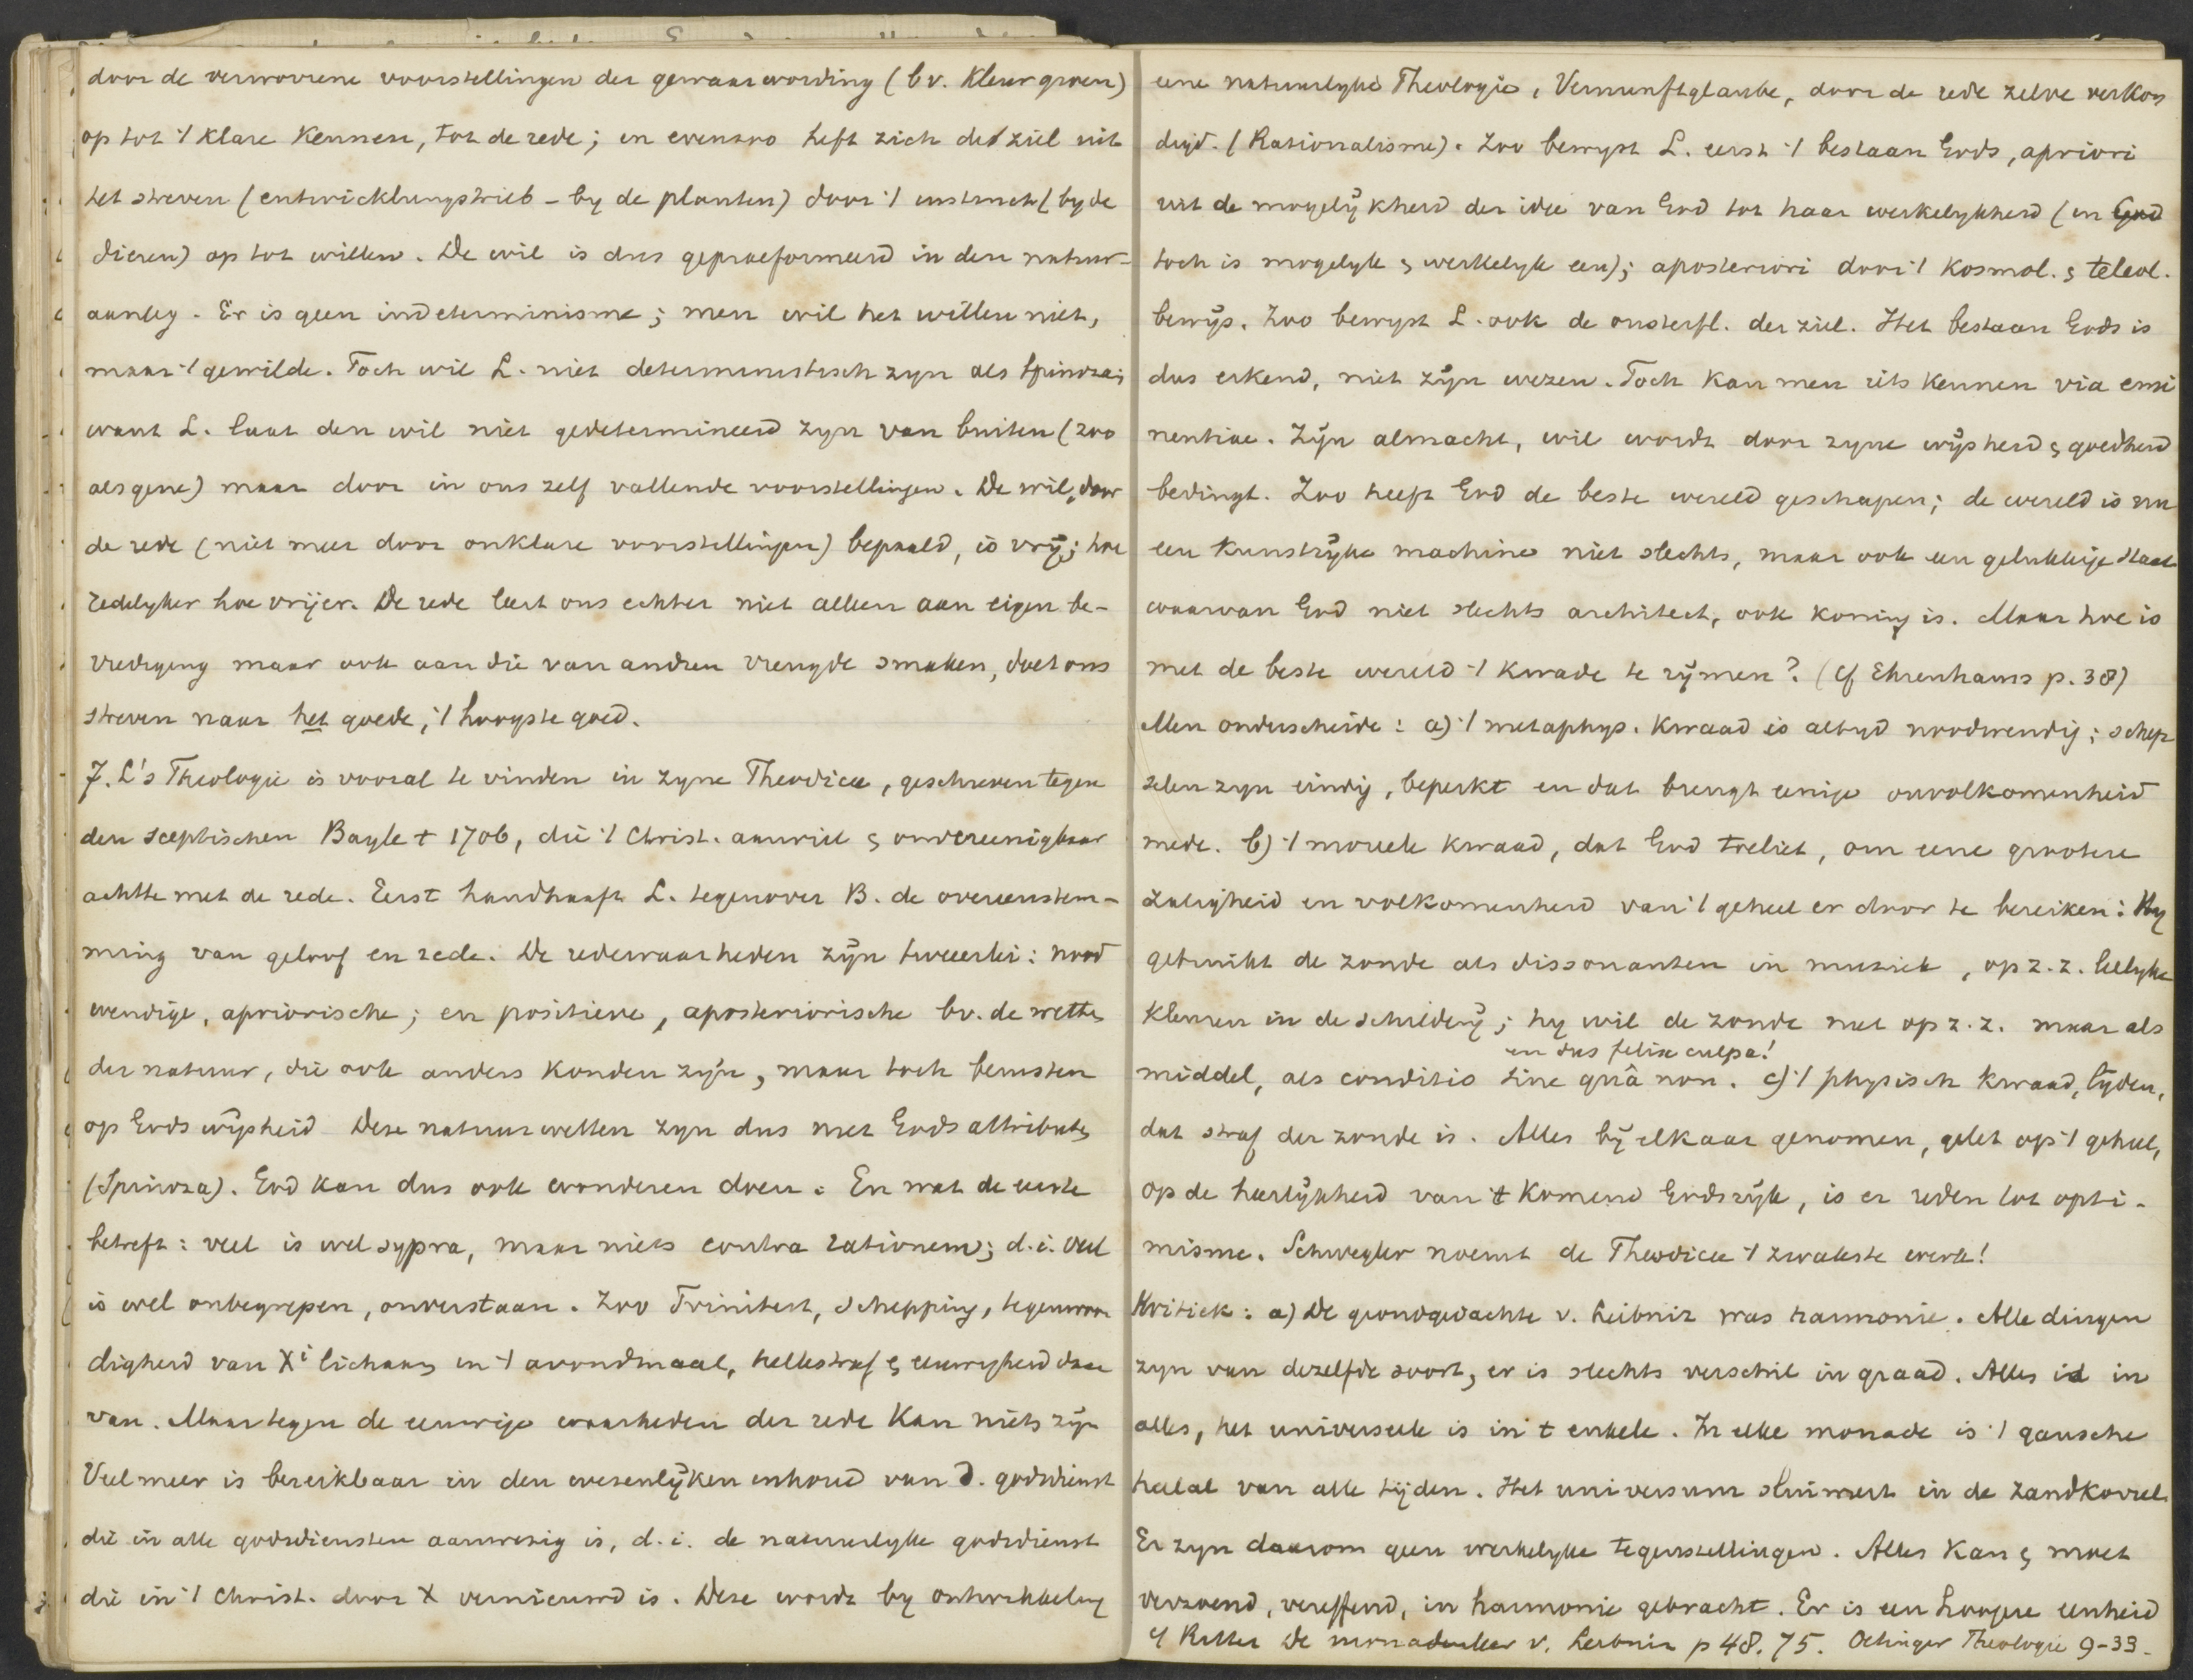 door de verworrene voorstellingen der gewaarwording (bv. kleur groen)
op tot 't klare Kennen, tot de rede; en evenzoo heft zich de ziel uit
het streven (entwicklungstrieb - by de planten) door 't instinct (by de
dieren) op tot willen. De wil is dus gepraeformeerd in den natuur-
aanleg. Er is geen indeterminisme; men wil het willen niet,
maar 't gewilde. Toch wil L. niet deterministisch zyn als Spinoza;
want L. laat den wil niet gedetermineerd zyn van buiten (zoo
als gene) maar door in ons zelf vallende voorstellingen. De wil, door
de rede (niet meer door onklare voorstellingen) bepaald, is vrij; hoe
redelyker hoe vrijer. De rede leert ons echter niet alleen aan eigen be-
vrediging maar ook aan die van andren vreugde smaken, doet ons
streven naar het goede, 't hoogste goed.
7. L's Theologie is vooral te vinden in zyne Theodicee, geschreven tegen
den sceptischen Bayle † 1706, die 't Christ. aanviel & onvereenigbaar
achtte met de rede. Eerst handhaaft L. tegenover B. de overeenstem-
ming van geloof en rede. De redewaarheden zijn tweeerlei: nood
wendige, apriorische; en positieve, aposteriorische bv. de wetten
der natuur, die ook anders konden zijn, maar toch berusten
op Gods wijsheid Deze natuurwetten zyn dus niet Gods attributen
(Spinoza). God kan dus ook wonderen doen. En wat de eerste
betreft: veel is wel sypra, maar niets contra rationem; d.i. veel
is wel onbegrepen, onverstaan. Zoo Triniteit, schepping, tegenwoor
digheid van Xi lichaam in 't avondmaal, hellestraf & eeuwigheid daar
van. Maar tegen de eeuwige waarheden der rede kan niets zijn
Veel meer is bereikbaar in den wezenlijken inhoud van d. godsdienst
die in alle godsdiensten aanwezig is, d.i. de natuurlyke godsdienst
die in 't Christ. door X vernieuwd is. Deze wordt by ontwikkeling
eene natuurlyke Theologie, Vernunftglaube, door de rede zelve verkon
digd. (Rationalisme). Zoo bewyst L. eerst 't bestaan Gods, apriori
uit de mogelijkheid der idee van God tot haar werkelykheid (in God
toch is mogelyk & werkelyk een); aposteriori door 't kosmol. & teleol.
bewijs. Zoo bewyst L. ook de onsterfl. der ziel. Het bestaan Gods is
dus erkend, niet zijn wezen. Toch kan men iets kennen via emi
nentiae. Zijn almacht, wil wordt door zyne wijsheid & goedheid
bedingt. Zoo heeft God de beste wereld geschapen; de wereld is nu
een kunstrijke machine niet slechts, maar ook een gelukkige staat
waarvan God niet slechts architect, ook koning is. Maar hoe is
met de beste wereld 't kwade te rijmen? (cf Ehrenhaus p. 38)
Men onderscheide: a) 't metaphys. kwaad is altyd noodwendig; schep
selen zyn eindig, beperkt en dat brengt eenige onvolkomenheid
mede. b) 't moreele kwaad, dat God toeliet, om eene grootere
zaligheid en volkomenheid van 't geheel er door te bereiken: Hy
gebruikt de zonde als dissonanten in muziek, op z.z. leelyke
kleuren in de schilderij; hy wil de zonde niet op z.z. maar als
en dus felix culpa!
middel, als conditio sine quâ non. c) 't physisch kwaad, lijden,
dat straf der zonde is. Alles bij elkaar genomen, gelet op 't geheel,
op de heerlijkheid van 't komend Godsrijk, is er reden tot opti-
misme. Schwegler noemt de Theodicee 't zwakste werk!
Kritiek: a) De grondgedachte v. Leibniz was harmonie. Alle dingen
zyn van dezelfde soort, er is slechts verschil in graad. Alles is in
alles, het universeele is in 't enkele. In elke monade is 't gansche
heelal van alle tijden. Het universum sluimert in de zandkorrel.
Er zyn daarom geen werkelyke tegenstellingen. Alles kan & moet
verzoend, vereffend, in harmonie gebracht. Er is een hoogere eenheid
cf Ritter De monadenleer v. Leibniz p 48. 75. Oetinger Theologie 9-33.